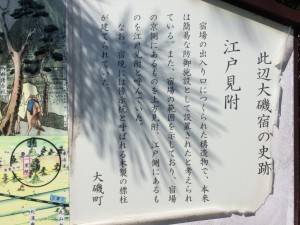 此辺大磯宿の史跡
江戸見附
宿場の出入り口につくられた構造物で、本来
は簡易な防御施設として設置されたと考えられ
ている。また、宿場の範囲を示しており、宿場
の京側にあるものを上方見附、江戸側にあるも
のを江戸見附と呼んでいた。
なお、宿境には榜示杭と呼ばれる木製の標柱
が建てられていた。
大磯町